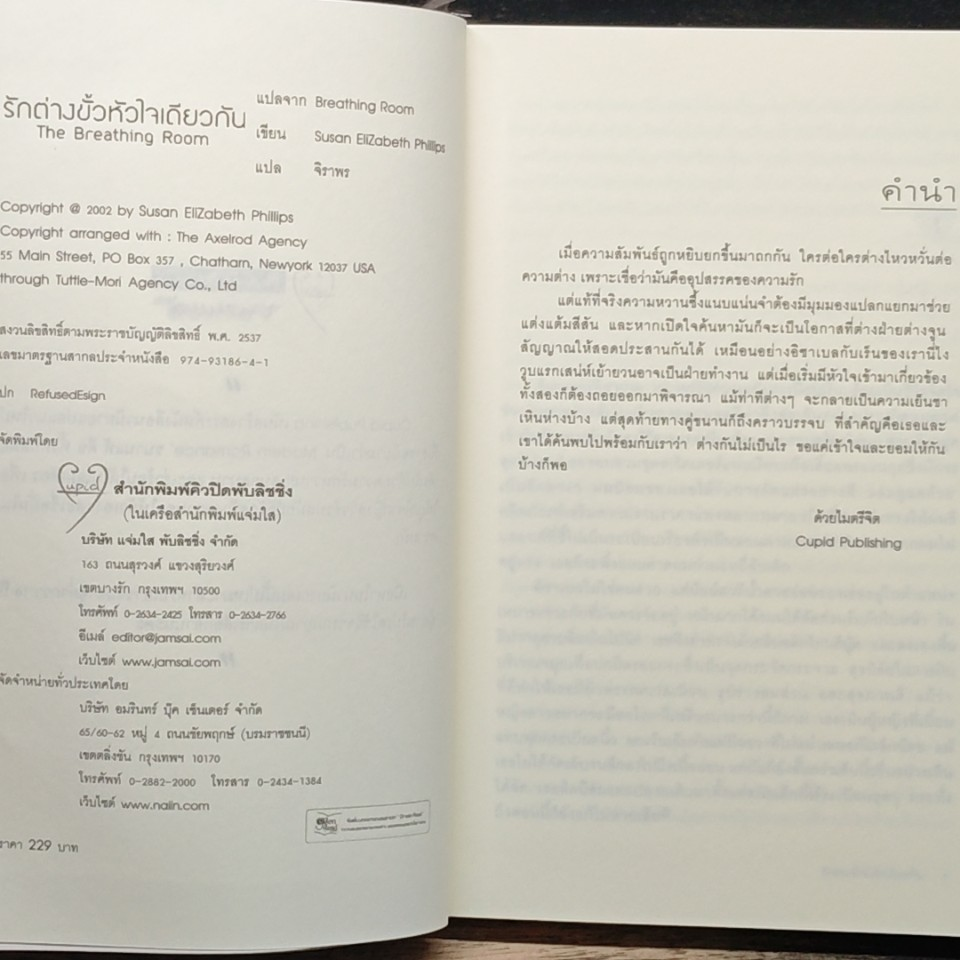 รักต่างขั้วหัวใจเดียวกัน
The Breathing Room
แปลจาก Breathing Room
เขียน Susan EliZabeth Phillips
แปล จิราพร
Copyright @ 2002 by Susan EliZabeth Phillips
Copyright arranged with : The Axelrod Agency
55 Main Street, PO Box 357 , Chatharn, Newyork 12037 USA
through Tuttle-Mori Agency Co., Ltd
สงวนลิขสิทธิ์ตามพระราชบัญญัติลิขสิทธิ์ พ.ศ. 2537
เลขมาตรฐานสากลประจำหนังสือ 974-93186-4-1
ปก RefusedEsign
จัดพิมพ์โดย
Cupid สำนักพิมพ์คิวปิดพับลิชชิ่ง
(ในเครือสำนักพิมพ์แจ่มใส)
บริษัท แจ่มใส พับลิชชิ่ง จำกัด
163 ถนนสุรวงศ์ แขวงสุริยวงศ์
เขตบางรัก กรุงเทพฯ 10500
โทรศัพท์ 0-2634-2425 โทรสาร 0-2634-2766
อีเมล์ editor@jamsai.com
เว็บไซต์ www.jamsai.com
จัดจำหน่ายทั่วประเทศโดย
บริษัท อมรินทร์ บุ๊ค เซ็นเตอร์ จำกัด
65/60-62 หมู่ 4 ถนนชัยพฤกษ์ (บรมราชชนนี)
เขตตลิ่งชัน กรุงเทพฯ 10170
โทรศัพท์ 0-2882-2000 โทรสาร 0-2434-1384
เว็บไซต์ www.naiin.com
ราคา 229 บาท
คำนำ
เมื่อความสัมพันธ์ถูกหยิบยกขึ้นมาถกกัน ใครต่อใครต่างไหวหวั่นต่อ
ความต่าง เพราะเชื่อว่ามันคืออุปสรรคของความรัก
แต่แท้ที่จริงความหวานซึ้งแนบแน่นจำต้องมีมุมมองแปลกแยกมาช่วย
แต่งแต้มสีสัน และหากเปิดใจค้นหามันก็จะเป็นโอกาสที่ต่างฝ่ายต่างจูน
สัญญาณให้สอดประสานกันได้ เหมือนอย่างอิซาเบลกับเร็นของเรานี่ไง
วูบแรกเสน่ห์เย้ายวนอาจเป็นฝ่ายทำงาน แต่เมื่อเริ่มมีหัวใจเข้ามาเกี่ยวข้อง
ทั้งสองก็ต้องถอยออกมาพิจารณา แม้ท่าทีต่างๆ จะกลายเป็นความเย็นชา
เหินห่างบ้าง แต่สุดท้ายทางคู่ขนานก็ถึงคราวบรรจบ ที่สำคัญคือเธอและ
เขาได้ค้นพบไปพร้อมกับเราว่า ต่างกันไม่เป็นไร ขอแค่เข้าใจและยอมให้กัน
บ้างก็พอ
ด้วยไมตรีจิต
Cupid Publishing